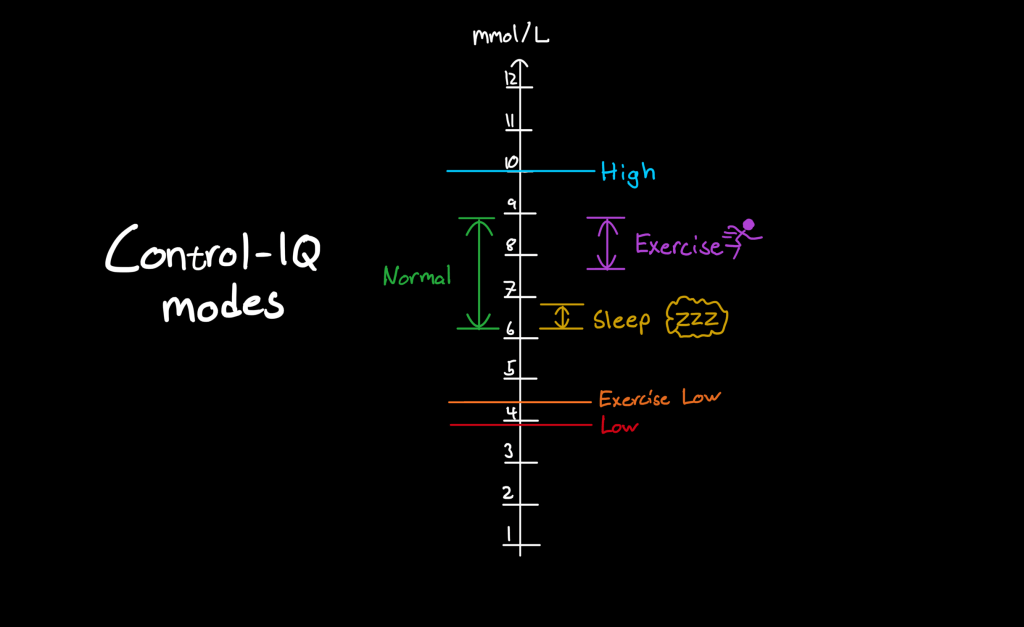 mmol/L
12
11
10
High
9
8
Exercise
Control-IQ
modes
Normal
7
6
Sleep
ZZZ
5
Exercise Low
4
Low
3
2
1